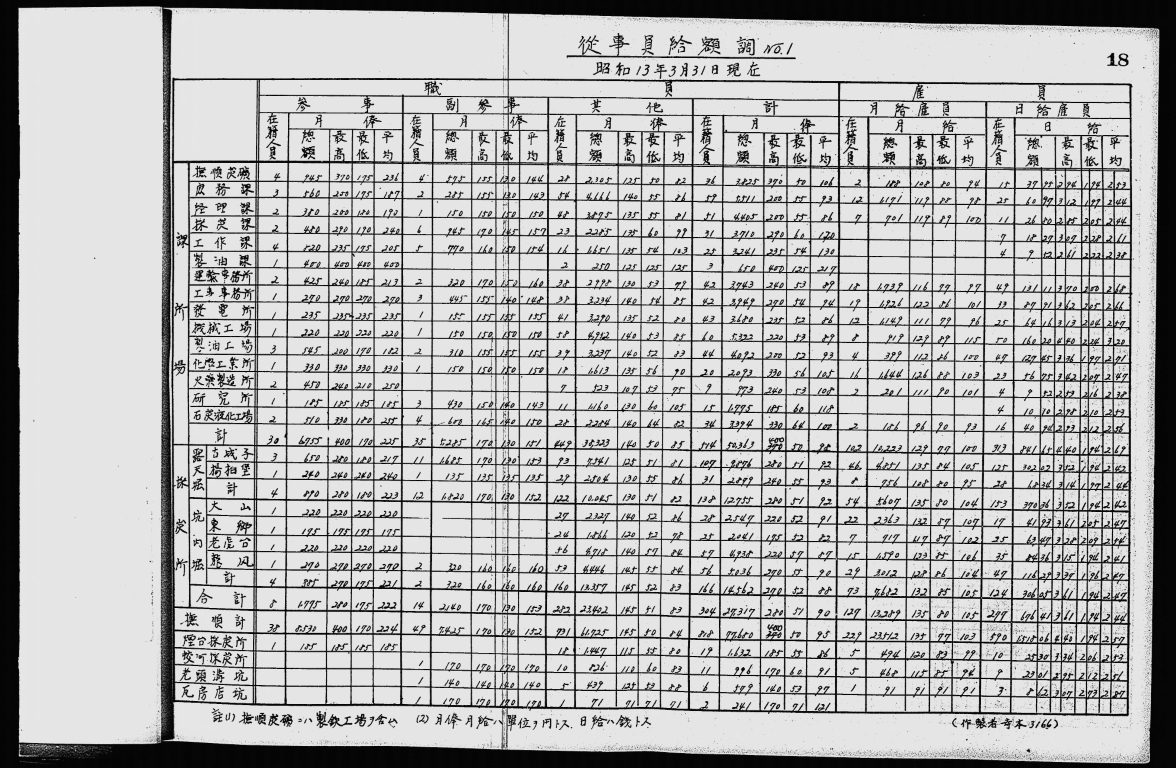 從事員給額調 No.1
18
昭和13年3月31日現在
職員 雇員
參事 副參事 其他 計 月給雇員 日給雇員
在籍人員 月俸 在籍人員 月俸 在籍人員 月俸 在籍人員 月俸 在籍人員 月給 在籍人員 日給
總額 最高 最低 平均 總額 最高 最低 平均 總額 最高 最低 平均 總額 最高 最低 平均 總額 最高 最低 平均 總額 最高 最低 平均
課所場
撫順炭礦 4 945 370 175 236 4 575 155 130 144 28 2,305 125 50 82 36 3,825 370 50 106 2 188 108 80 94 15 37 95 2 94 1 94 2 53
庶務課 3 560 200 175 187 2 285 155 130 143 54 4,666 140 55 86 59 5,511 200 55 93 12 1,171 119 88 98 25 60 99 3 12 1 97 2 44
經理課 2 380 200 180 190 1 150 150 150 150 48 3,875 135 55 81 51 4,405 200 55 86 7 701 119 89 100 11 26 80 2 85 2 05 2 44
採炭課 2 480 290 190 240 6 945 170 145 157 23 2,285 135 60 99 31 3,710 290 60 120 7 18 27 3 07 2 28 2 61
工作課 4 820 235 175 205 5 770 160 150 154 16 1,651 135 54 103 25 3,241 235 54 130 4 9 52 2 61 2 22 2 38
製油課 1 400 400 400 400 2 250 125 125 125 3 650 400 125 217
運輸事務所 2 425 240 185 213 2 320 170 150 160 38 2,998 130 53 79 42 3,743 240 53 89 18 1,739 116 77 97 49 131 11 3 70 2 00 2 68
工事事務所 1 270 270 270 270 3 445 155 140 148 38 3,234 140 54 85 42 3,949 270 54 94 19 1,926 122 86 101 33 87 91 3 62 2 05 2 66
發電所 1 235 235 235 235 1 155 155 155 155 41 3,290 135 52 80 43 3,680 235 52 86 12 1,149 111 79 96 25 64 16 3 13 2 04 2 57
機械工場 1 220 220 220 220 1 150 150 150 150 58 4,952 140 53 85 60 5,322 220 53 89 8 919 129 89 115 50 160 20 4 40 2 24 3 20
製油工場 3 545 200 170 182 2 310 155 155 155 39 3,237 140 52 83 44 4,092 200 52 93 4 399 112 86 100 47 127 45 3 36 1 97 2 71
化學工業所 1 330 330 330 330 1 150 150 150 150 18 1,613 135 56 90 20 2,093 330 56 105 16 1,644 126 88 103 23 56 75 3 42 2 07 2 47
火藥製造所 2 450 240 210 250 7 523 107 53 75 9 973 240 53 108 2 201 111 90 101 4 9 52 2 53 2 16 2 38
研究所 1 185 185 185 185 3 430 150 140 143 11 1,160 130 60 105 15 1,775 185 60 118 4 10 10 2 98 2 10 2 53
石炭液化工場 2 510 330 180 255 4 600 165 140 150 28 2,284 140 64 82 34 3,394 330 64 100 2 186 96 90 93 16 40 94 2 93 2 12 2 56
計 30 6,755 400 170 225 35 5,285 170 130 151 449 38,323 140 50 85 514 50,363 400 50 98 102 10,223 129 77 100 313 841 65 4 40 1 94 2 69
採炭所
露堀
古城子 3 650 280 180 217 11 1,685 170 130 153 93 7,541 125 51 81 107 9,876 280 51 92 46 4,851 135 84 105 125 302 02 3 52 1 94 2 42
大揚柏堡 1 240 240 240 240 1 135 135 135 135 29 2,504 130 55 86 31 2,879 240 55 93 8 756 108 80 95 28 68 34 3 14 1 97 2 44
計 4 890 280 180 223 12 1,820 170 130 152 122 10,045 130 51 82 138 12,755 280 51 92 54 5,607 135 80 104 153 370 36 3 52 1 94 2 42
坑内堀
大山 1 220 220 220 220 27 2,327 140 52 86 28 2,547 220 52 91 22 2,363 132 87 107 17 41 93 3 61 2 05 2 47
東鄉 1 175 175 175 175 24 1,866 120 52 78 25 2,041 175 52 82 7 717 117 87 102 25 63 47 3 28 2 09 2 54
老虎台 1 220 220 220 220 56 4,718 140 57 84 57 4,938 220 57 87 15 1,590 123 85 106 35 84 36 3 15 1 94 2 41
龍鳳 1 270 270 270 270 2 320 160 160 160 53 4,446 145 55 84 56 5,036 270 55 90 29 3,012 128 86 104 47 116 29 3 35 1 96 2 47
計 4 885 270 175 221 2 320 160 160 160 160 13,357 145 52 83 166 14,562 270 52 88 73 7,682 132 85 105 124 306 05 3 61 1 94 2 47
合計 8 1,775 280 175 222 14 2,140 170 130 153 282 23,402 145 51 83 304 27,317 280 51 90 127 13,289 135 80 105 277 676 41 3 61 1 94 2 44
撫順計 38 8,530 400 170 224 49 7,425 170 130 152 731 61,725 145 50 84 818 77,680 400 50 95 229 23,512 135 77 103 590 1,518 06 4 40 1 94 2 57
煙台採炭所 1 185 185 185 185 18 1,447 115 55 80 19 1,632 185 55 86 5 494 120 83 99 10 25 30 3 34 2 06 2 53
蛟河採炭所 1 170 170 170 170 10 826 110 60 83 11 996 170 60 91 5 468 115 85 94 9 23 01 2 95 2 12 2 51
老頭溝坑 1 140 140 140 140 5 439 125 53 88 6 579 140 53 97 1 91 91 91 91 3 8 62 3 07 2 73 2 87
瓦房店坑 1 170 170 170 170 1 71 71 71 71 2 241 170 71 121
註(1) 撫順炭礦ニハ製鉄工場ヲ含ム (2) 月俸月給ハ單位ヲ円トス 日給ハ錢トス
(作製者 寺本 3166)